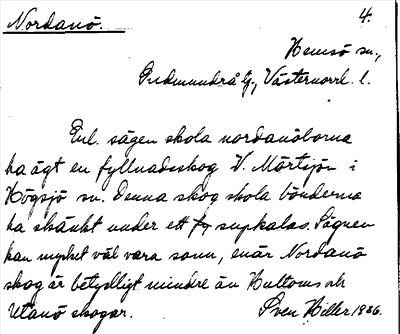 Nordanö.
4.
Hemsö sn.,
Gudmundrå tg, Västernorrl. l.
Enl. sägen skola nordanöborna
ha ägt en fyllnadsskog V. Mörtsjön i
Högsjö sn. Denna skog skola bönderna
ha skänkt under ett supkalas. Sägnen
kan mycket väl vara sann, enär Nordanö
skog är betydligt mindre än Hultoms och
Utanö skogar. Sven Hiller 1936.